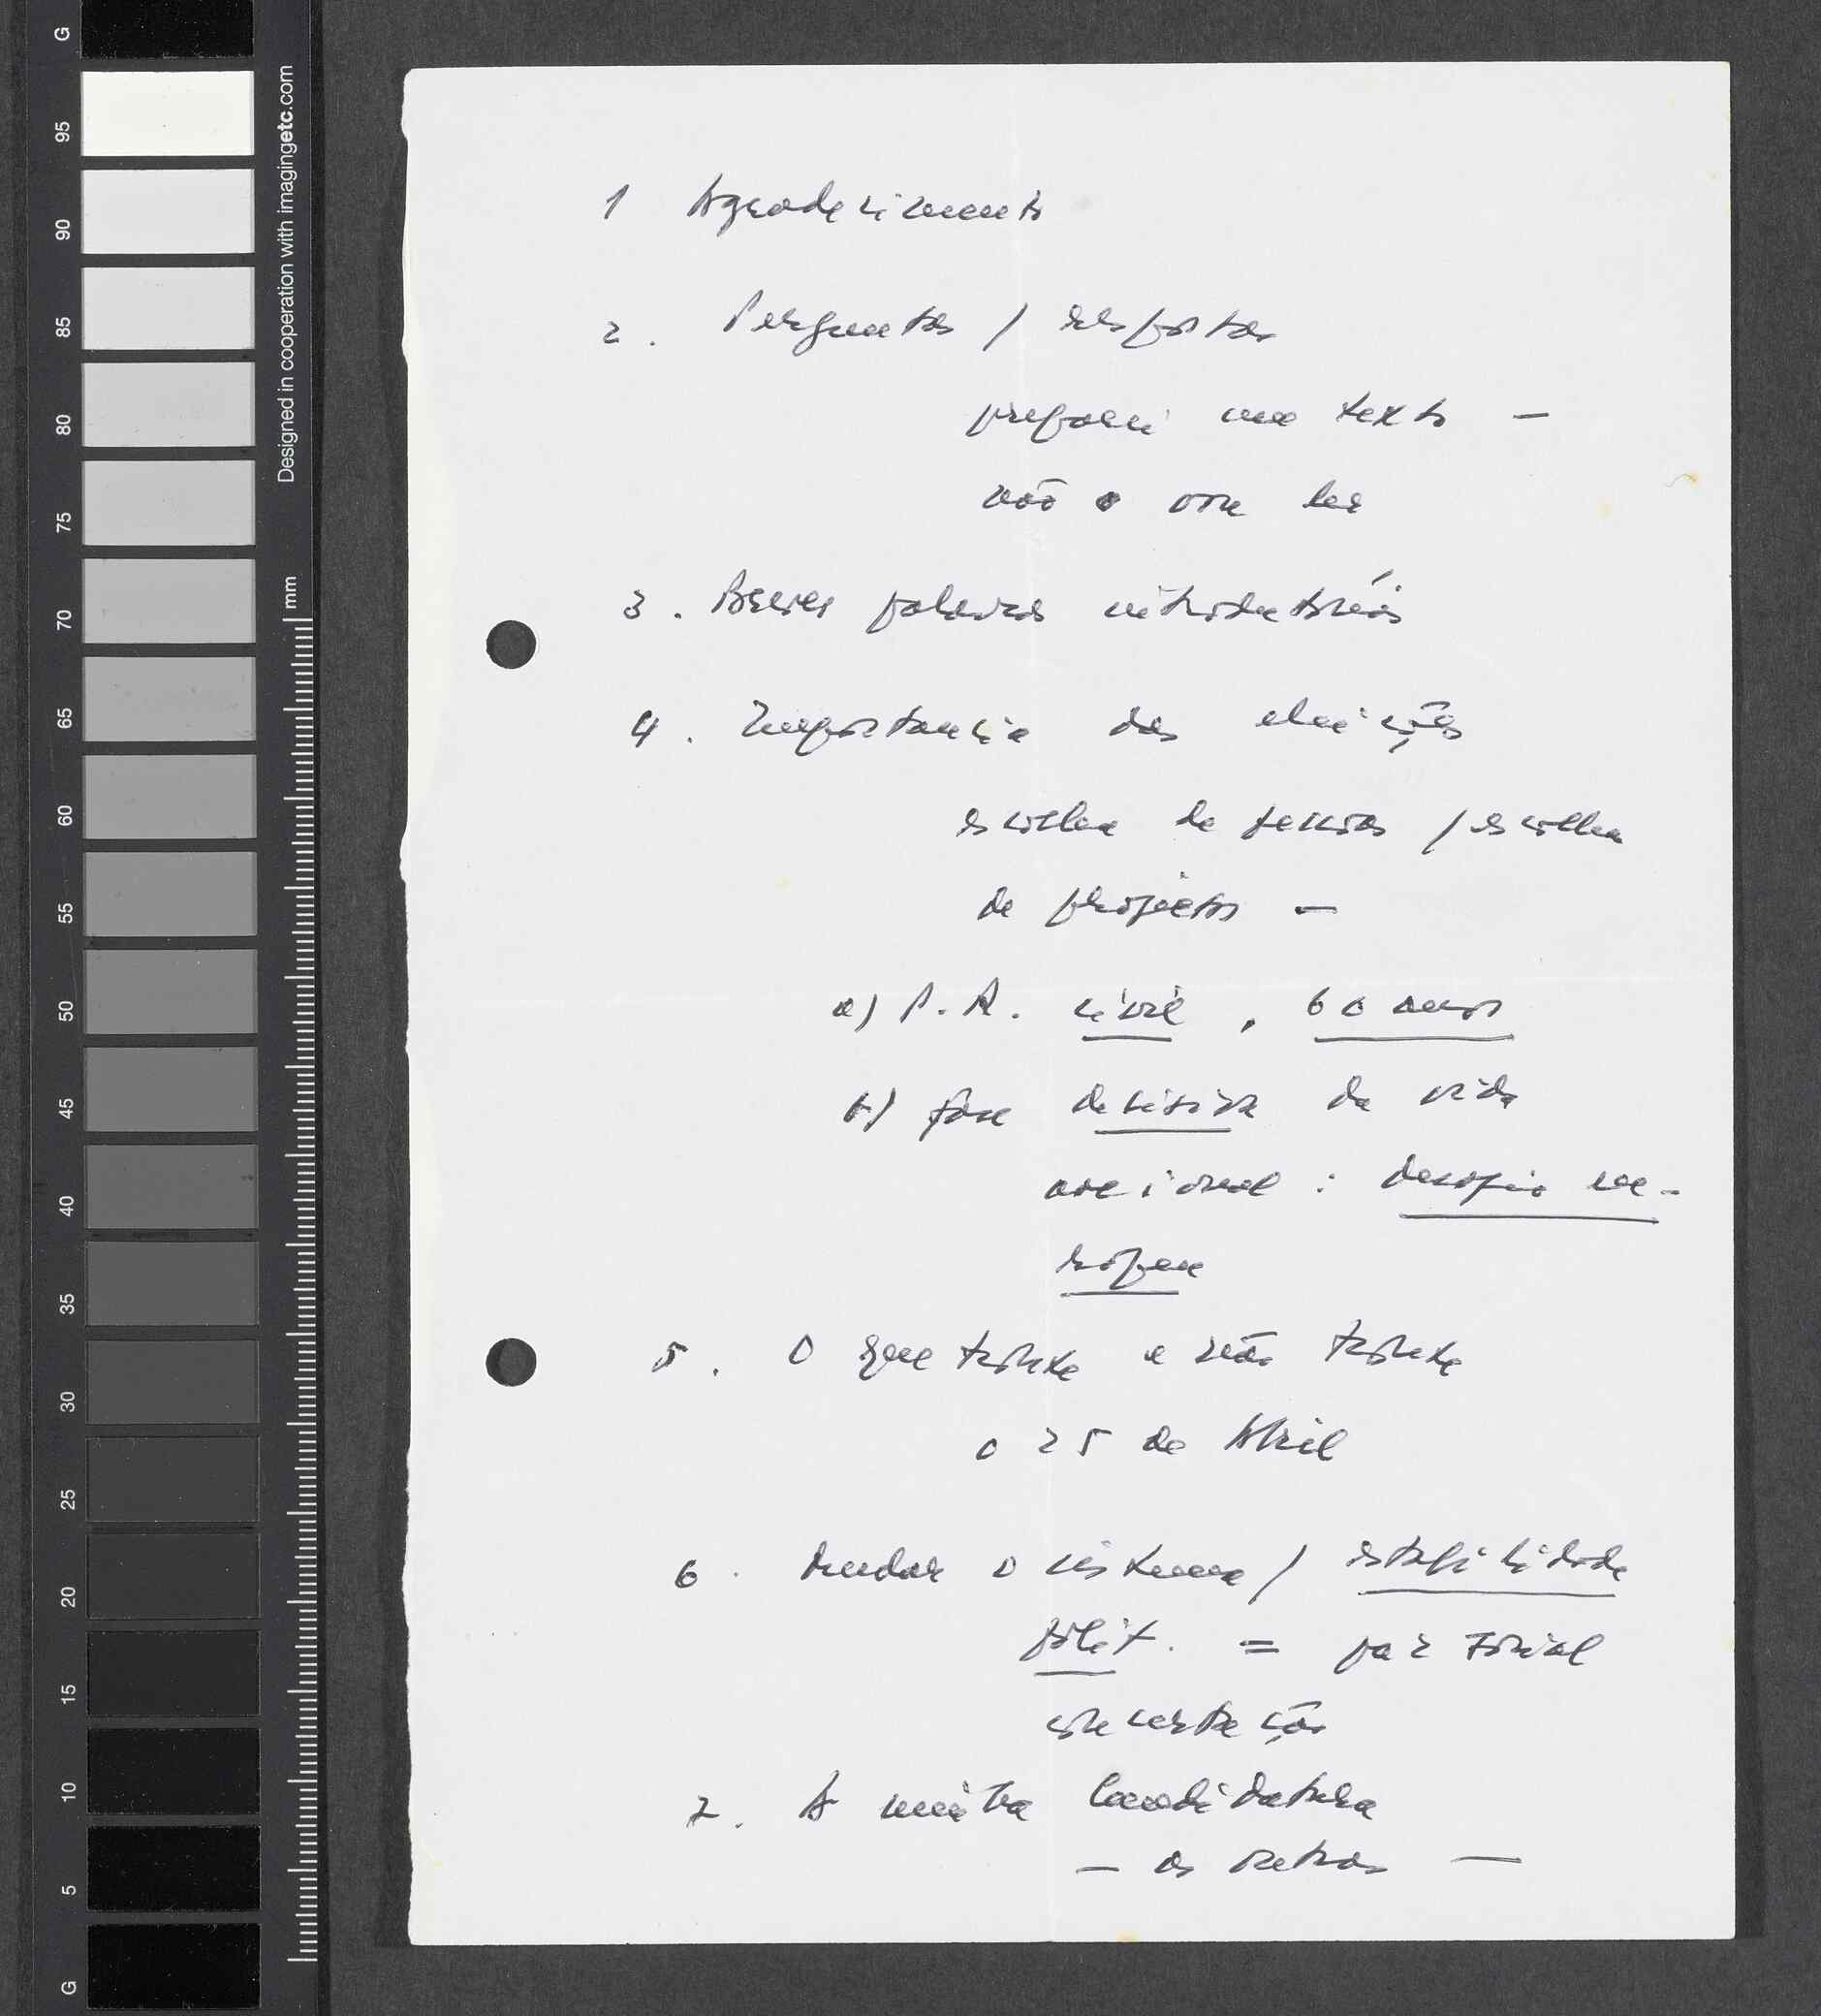 G
95
90
85
80
75
70
65
60
55
50
45
40
35
30
25
20
15
10
5
G
Designed in cooperation with imagingetc.com
mm
1 Agradecimento
2. Perguntas / respostas
preparei um texto —
não o vou ler
3. Breves palavras introdutórias
4. Importancia das eleições
escolha de pessoas / escolha
de projectos —
a) P.R. civil, 60 anos
b) fase decisiva da vida
nacional: desafio eu-
ropeu
5. O que trouxe e não trouxe
o 25 de Abril
6. Mudar o sistema / estabilidade
polít. = paz social
concertação
7. A minha Candidatura
— as outras —